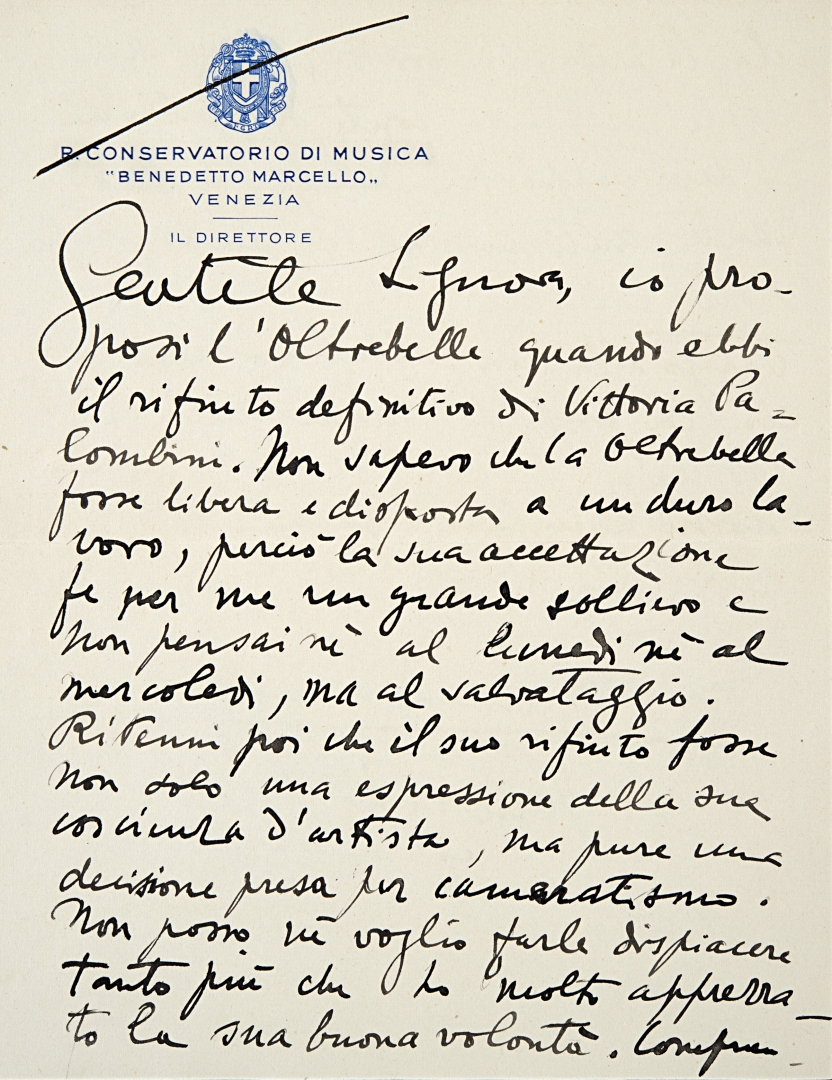 R. CONSERVATORIO DI MUSICA
"BENEDETTO MARCELLO„
VENEZIA
IL DIRETTORE
Gentile Signora, io pro-
posi l'Oltrebelle quando ebbi
il rifiuto definitivo di Vittoria Pa=
lombini. Non sapevo che la Oltrebella
fosse libera e disposta a un duro la-
voro, perciò la sua accettazione
fe per me un grande sollievo e
non pensai nè al lunedì nè al
mercoledì, ma al salvataggio.
Ritenni poi che il suo rifiuto fosse
non solo una espressione della sua
coscienza d'artista, ma pure una
decisione presa per cameratismo.
Non posso nè voglio farle dispiacere
tanto più che ho molto apprezza-
to la sua buona volontà. Compren-